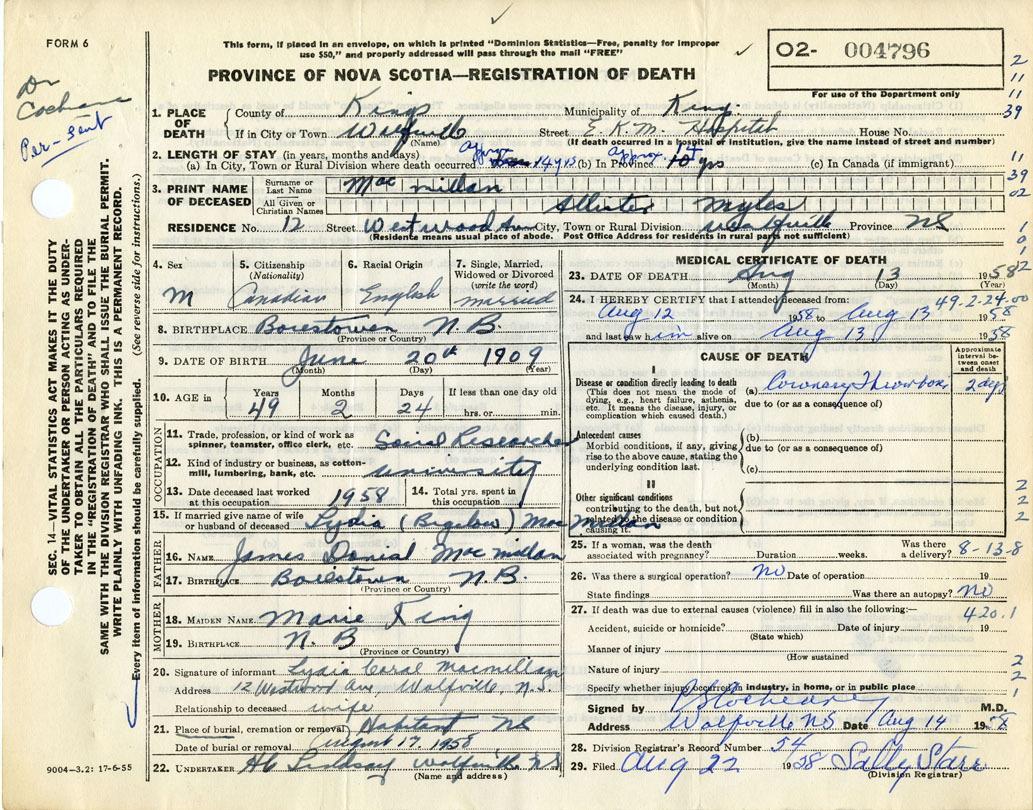 FORM 6
This form, if placed in an envelope, on which is printed "Dominion Statistics—Free, penalty for improper
use $50," and properly addressed will pass through the mail "FREE"
O2- 004796
PROVINCE OF NOVA SCOTIA—REGISTRATION OF DEATH
For use of the Department only
2
11
11
39
11
39
02
1
9
2
Dr
Cochrane
Per-sent
SEC. 14—VITAL STATISTICS ACT MAKES IT THE DUTY
OF THE UNDERTAKER OR PERSON ACTING AS UNDER-
TAKER TO OBTAIN ALL THE PARTICULARS REQUIRED
IN THE "REGISTRATION OF DEATH" AND TO FILE THE
SAME WITH THE DIVISION REGISTRAR WHO SHALL ISSUE THE BURIAL PERMIT.
WRITE PLAINLY WITH UNFADING INK. THIS IS A PERMANENT RECORD.
Every item of information should be carefully supplied. (See reverse side for instructions.)
1. PLACE OF DEATH County of Kings Municipality of King.
If in City or Town Wolfville Street E.K.M. Hospital House No.
(Name) (If death occurred in a hospital or institution, give the name instead of street and number)
2. LENGTH OF STAY (in years, months and days)
(a) City, Town or Rural Division where death occurred approx 14 yrs (b) In Province approx. 14 yrs (c) In Canada (if immigrant)
3. PRINT NAME OF DECEASED Surname or Last Name Mac millan
All Given or Christian Names Allister Myles
RESIDENCE No. 12 Street Westwood Ave City, Town or Rural Division Wolfville Province NS
(Residence means usual place of abode. Post Office Address for residents in rural parts not sufficient)
4. Sex M
5. Citizenship (Nationality) Canadian
6. Racial Origin English
7. Single, Married, Widowed or Divorced (write the word) married
8. BIRTHPLACE Boiestown N.B.
(Province or Country)
9. DATE OF BIRTH June 20th 1909
(Month) (Day) (Year)
10. AGE in Years 49 Months 2 Days 24 If less than one day hrs. or min.
OCCUPATION
11. Trade, profession, or kind of work as spinner, teamster, office clerk, etc. Social Researcher
12. Kind of industry or business, as cotton-mill, lumbering, bank, etc. University
13. Date deceased last worked at this occupation 1958
14. Total yrs. spent in this occupation
15. If married give name of wife or husband of deceased Lydia (Bigelow) Mac Millan
FATHER
16. NAME James Danial Mac millan
17. BIRTHPLACE Boiestown N.B.
(Province or Country)
MOTHER
18. MAIDEN NAME Marie King
19. BIRTHPLACE N.B
(Province or Country)
20. Signature of informant Lydia Coral Macmillan
Address 12 Westwood Ave, Wolfville, N.S.
Relationship to deceased wife
21. Place of burial, cremation or removal Habitant NS
Date of burial or removal August 17. 1958
22. UNDERTAKER Lindsay Wolfville NS
(Name and address)
9004—3.2: 17-6-55
MEDICAL CERTIFICATE OF DEATH
23. DATE OF DEATH Aug 13 1958
(Month) (Day) (Year)
49-2-24-00
24. I HEREBY CERTIFY that I attended deceased from:
Aug 12 1958 to Aug 13 1958
and last saw him alive on Aug 13 1958
CAUSE OF DEATH
Approximate interval between onset and death
I
Disease or condition directly leading to death
(This does not mean the mode of dying, e.g., heart failure, asthenia, etc. It means the disease, injury, or complication which caused death.)
(a) Coronary Thrombosis 2 days
due to (or as a consequence of)
Antecedent causes
Morbid conditions, if any, giving rise to the above cause, stating the underlying condition last.
(b)
due to (or as a consequence of)
(c)
II
Other significant conditions
contributing to the death, but not related to the disease or condition causing it.
2
2
2
25. If a woman, was the death associated with pregnancy? Duration weeks. Was there a delivery?
8-13-8
26. Was there a surgical operation? No Date of operation 19
State findings Was there an autopsy? No
27. If death was due to external causes (violence) fill in also the following:—
420.1
Accident, suicide or homicide? Date of injury 19
(State which)
Manner of injury
(How sustained
Nature of injury
2
2
1
Specify whether injury occurred in industry, in home, or in public place
Signed by M.D.
Address Wolfville NS Date Aug 14 1958
28. Division Registrar's Record Number 54
29. Filed Aug 22 1958 Sally Starr
(Division Registrar)